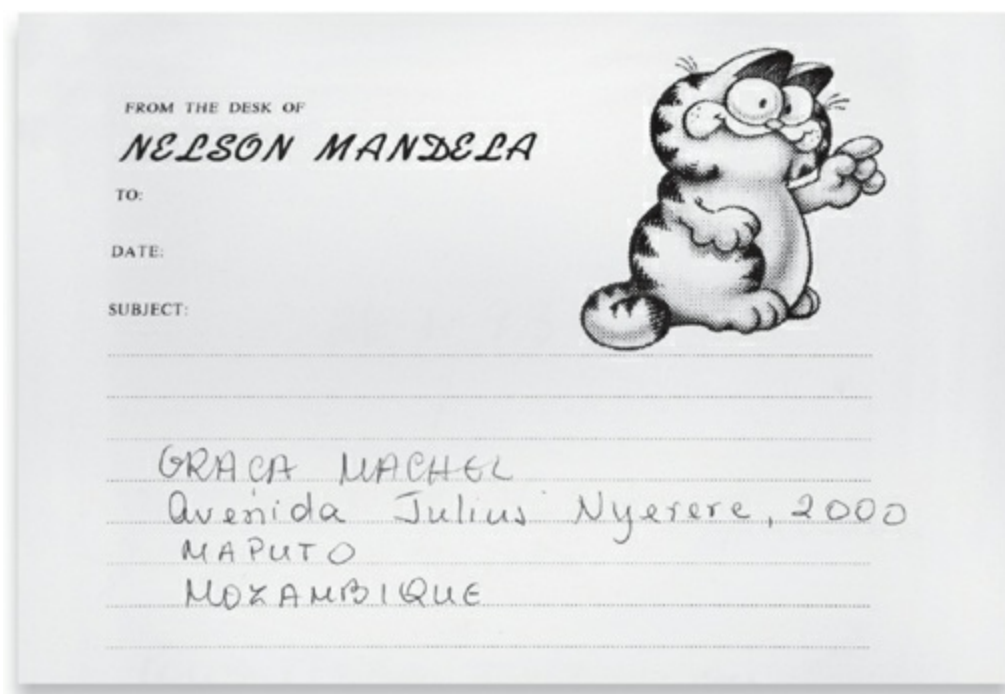 FROM THE DESK OF
NELSON MANDELA
TO:
DATE:
SUBJECT:
GRAÇA MACHEL
Avenida Julius Nyerere, 2000
MAPUTO
MOZAMBIQUE